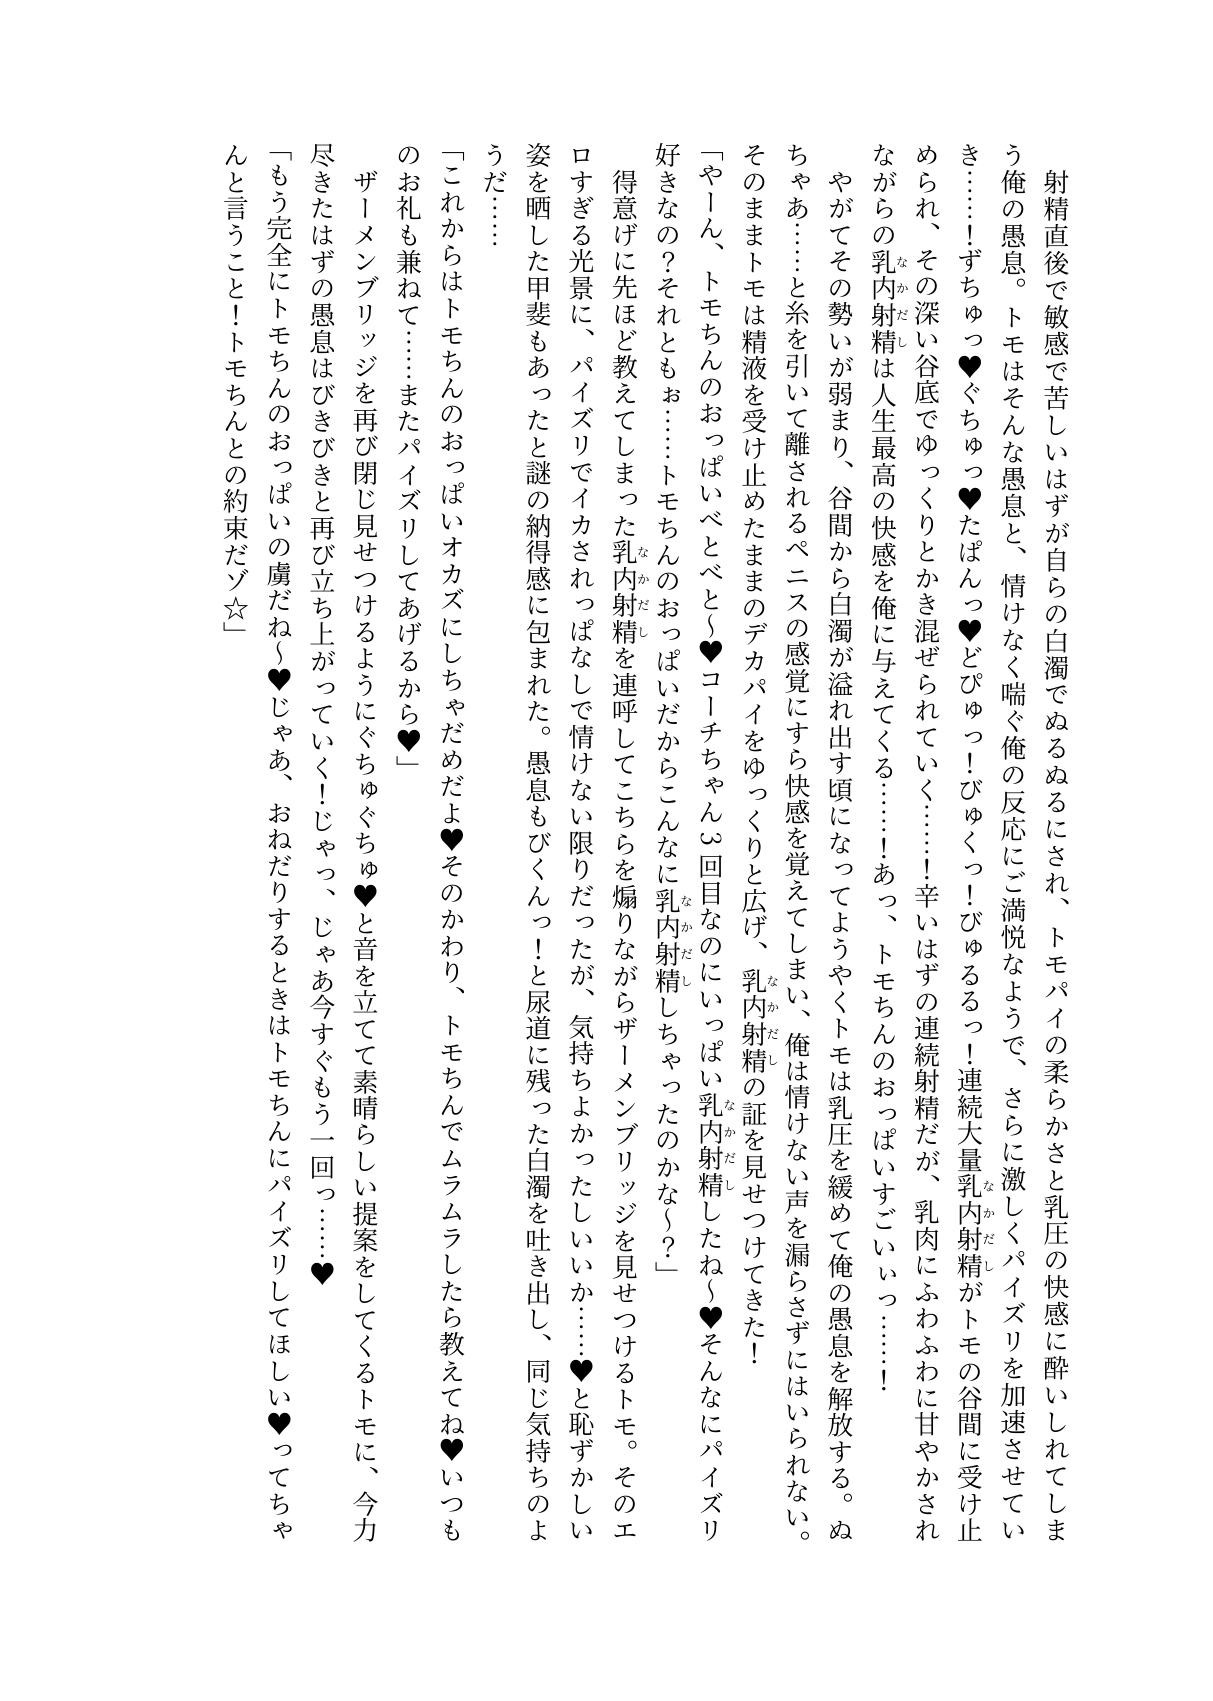 射精直後で敏感で苦しいはずが自らの白濁でぬるぬるにされ、トモパイの柔らかさと乳圧の快感に酔いしれてしま
う俺の愚息。トモはそんな愚息と、情けなく喘ぐ俺の反応にご満悦なようで、さらに激しくパイズリを加速させてい
き……！ずちゅっ♥ぐちゅっ♥たぱんっ♥どぴゅっ！びゅくっ！びゅるるっ！連続大量乳内射精がトモの谷間に受け止
められ、その深い谷底でゆっくりとかき混ぜられていく……！辛いはずの連続射精だが、乳肉にふわふわに甘やかされ
ながらの乳内射精は人生最高の快感を俺に与えてくる……！あっ、トモちんのおっぱいすごいぃっ……！
　やがてその勢いが弱まり、谷間から白濁が溢れ出す頃になってようやくトモは乳圧を緩めて俺の愚息を解放する。ぬ
ちゃあ……と糸を引いて離されるペニスの感覚にすら快感を覚えてしまい、俺は情けない声を漏らさずにはいられない。
そのままトモは精液を受け止めたままのデカパイをゆっくりと広げ、乳内射精の証を見せつけてきた！
「やーん、トモちんのおっぱいべとべと〜♥コーチちゃん3回目なのにいっぱい乳内射精したね〜♥そんなにパイズリ
好きなの？それともぉ……トモちんのおっぱいだからこんなに乳内射精しちゃったのかな〜？」
　得意げに先ほど教えてしまった乳内射精を連呼してこちらを煽りながらザーメンブリッジを見せつけるトモ。そのエ
ロすぎる光景に、パイズリでイカされっぱなしで情けない限りだったが、気持ちよかったしいいか……♥と恥ずかしい
姿を晒した甲斐もあったと謎の納得感に包まれた。愚息もびくんっ！と尿道に残った白濁を吐き出し、同じ気持ちのよ
うだ……
「これからはトモちんのおっぱいオカズにしちゃだめだよ♥そのかわり、トモちんでムラムラしたら教えてね♥いつも
のお礼も兼ねて……またパイズリしてあげるから♥」
　ザーメンブリッジを再び閉じ見せつけるようにぐちゅぐちゅ♥と音を立てて素晴らしい提案をしてくるトモに、今力
尽きたはずの愚息はびきびきと再び立ち上がっていく！じゃっ、じゃあ今すぐもう一回っ……♥
「もう完全にトモちんのおっぱいの虜だね〜♥じゃあ、おねだりするときはトモちんにパイズリしてほしい♥ってちゃ
んと言うこと！トモちんとの約束だゾ☆」